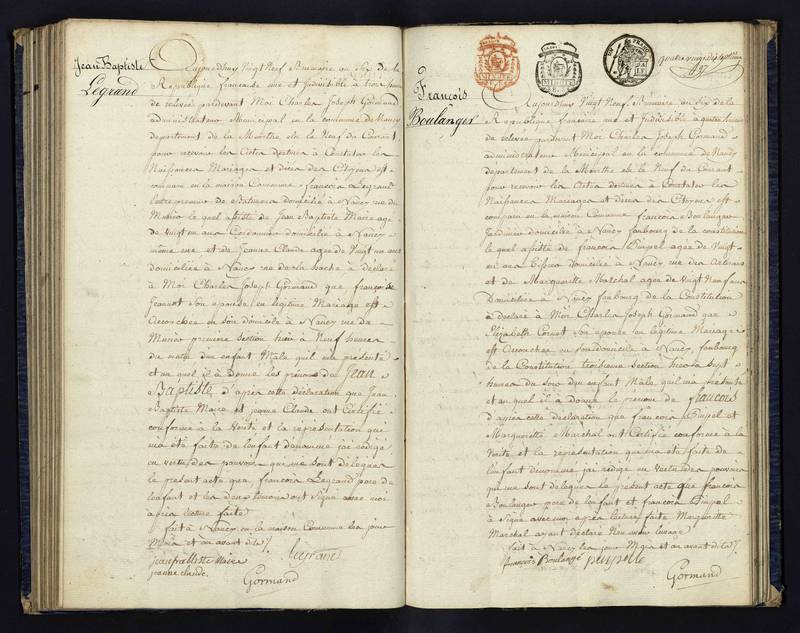 Jean Baptiste
Legrand
Aujourdhuy Vingt Neuf Brumaire an Six de la
Republique francaise une et Indivisible à trois heures
de relevée pardevant Moi Charles Joseph Gormand
administrateur Municipal en la commune de Nancy
departement de la Meurthe elu le Neuf du Courant
pour recevoir les Actes destinés à Constater les
Naissances Mariages et décès des Citoyens est
comparu en la maison Commune francois Legrand
entrepreneur de Batimens domicilié à Nancy rue du
lequel assisté de Jean Baptiste Maire agé
de Vingt un ans Cordonnier domicilié à Nancy
même rue et de Jeanne Claude agée de Vingt un ans
domiciliée à Nancy rue de la hache a déclaré
à Moi Charles Joseph Gormand que françoise
Jeannot son épouse en légitime Mariage est
accouchée en son domicile à Nancy rue du
premiere Section hier à Neuf heures
du matin d'un enfant Male qu'il m'a présenté
et auquel il à donné les prénoms de Jean
Baptiste d'après cette déclaration que Jean
Baptiste Maire et jeanne Claude ont Certifié
conforme à la Vérité et la représentation qui
m'a été faite de l'enfant dénommé jai rédigé
en vertu des pouvoirs qui me sont délégués
le présent acte que francois Legrand pere de
l'enfant et les deux témoins ont Signé avec moi
après lecture faite
fait à Nancy en la maison Commune les jour
Mois et an avant dits /.
jean Battiste Maire Legrand
jeanne claude.
Gormand
François
Boulanger
Aujourdhuy Vingt Neuf Brumaire an Six de la
Republique francaise une et Indivisible à quatre heures
de relevée pardevant Moi Charles Joseph Gormand
administrateur Municipal en la commune de Nancy
departement de la Meurthe elu le Neuf du Courant
pour recevoir les Actes destinés à Constater les
Naissances Mariages et décès des Citoyens est
comparu en la maison Commune francois Boulanger
Jardinier domicilié à Nancy faubourg de la constitution
lequel assisté de francois Pimpel agé de Vingt
ans domicilié à Nancy rue des Artisans
et de Marguerite Marchal agée de Vingt Neuf ans
Domiciliée à Nancy faubourg de la Constitution
à déclaré à Moi Charles Joseph Gormand que
Elizabeth son épouse en légitime Mariage
est accouchée en son domicile à Nancy faubourg
de la Constitution troisieme Section hier à Sept
heures du Soir d'un enfant Male qu'il m'a présenté
et auquel il à donné le prénom de francois
d'après cette déclaration que francois Pimpel et
Marguerite Marchal ont Certifié conforme à la
Vérité et la représentation qui m'a été faite de
l'enfant dénommé jai rédigé en vertu des pouvoirs
qui me sont délégués le présent acte que francois
Boulanger pere de l'enfant et francois Pimpel
à Signé avec moi après lecture faite Marguerite
Marchal ayant déclaré N'en avoir l'usage
fait à Nancy les jour Mois et an avant dits /.
François Boulange
Gormand